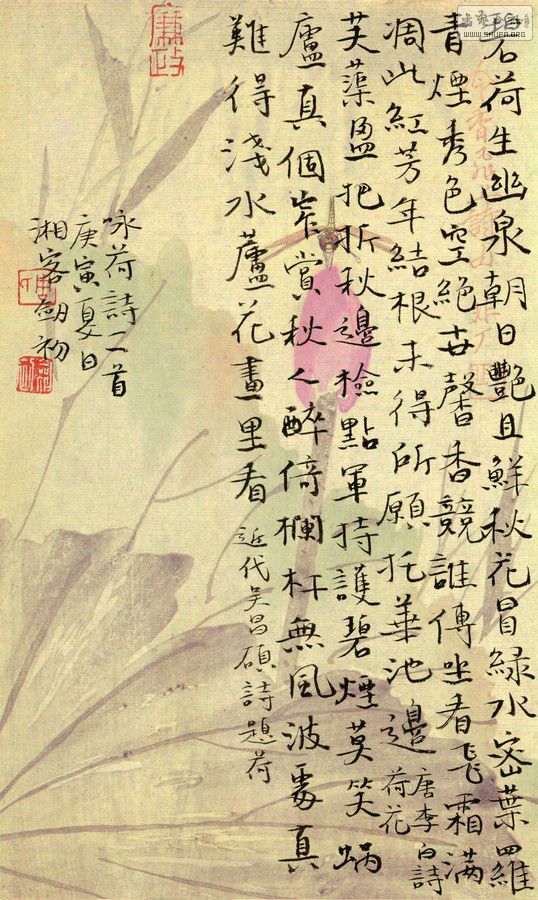 碧荷生幽泉朝日艷且鮮秋花冒緑水密葉羅
青煙秀色空絕世馨香競誰傳坐看飛霜滿
凋此紅芳年結根未得所願托華池邊
唐李白詩
荷花
芙蕖盈把折秋邊檢點軍持護碧煙莫笑蝸
廬真個窄賞秋人醉倚欄杆無風波處真
難得淺水蘆花畫里看
近代吳昌碩詩題荷
咏荷詩二首
庚寅夏日
湘客劍初